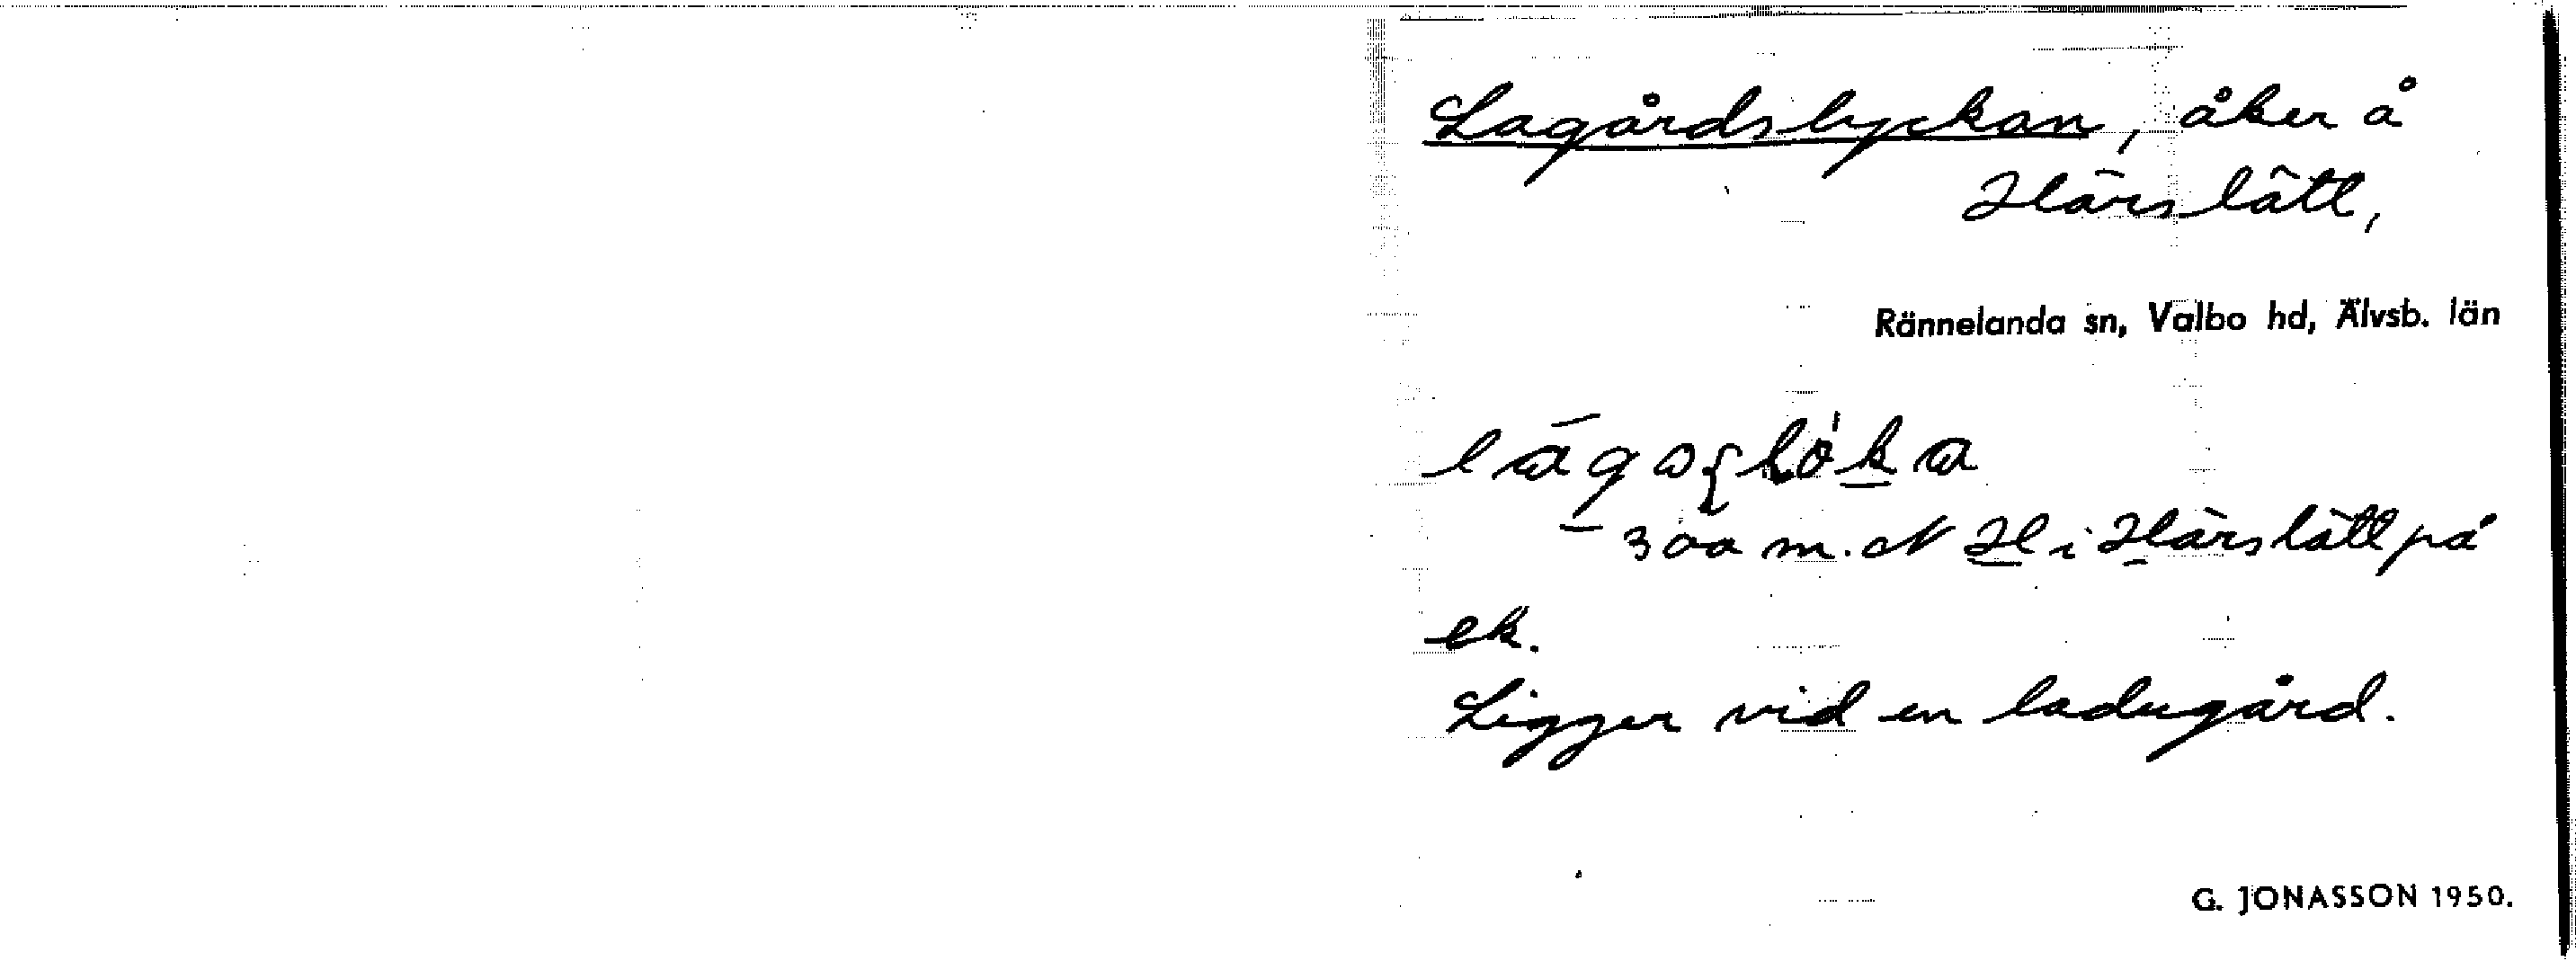 Lagårdslyckan, åker å
Härslätt,
Rännelanda sn, Valbo hd, Älvsb. län
300 m. N H i Härslätt på
ek.
Ligger vid en ladugård.
G. JONASSON 1950.